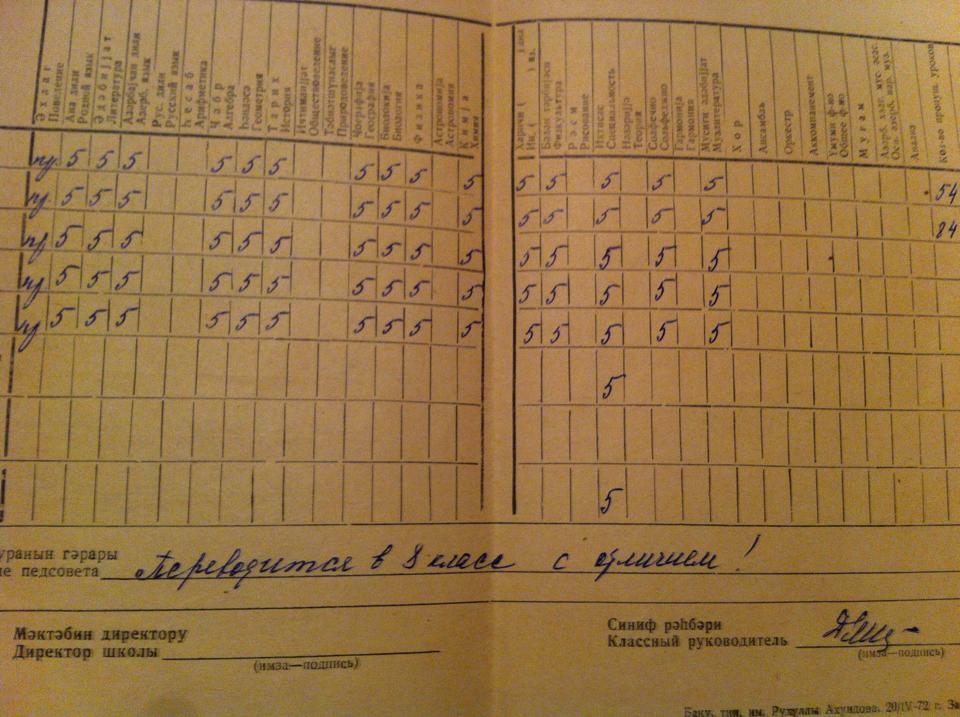 Әхлаг
Поведение
Ана дили
Родной язык
Әдәбиjjат
Литература
Азәрбаjчан дили
Азерб. язык
Рус. дили
Русский язык
Һесаб
Арифметика
Ҹәбр
Алгебра
Һәндәсә
Геометрия
Тарих
История
Иҹтимаиjjат
Обществоведение
Тәбиәтшүнаслыг
Природоведение
Ҹоғрафиjа
География
Биолокиjа
Биология
Физика
Астрономиjа
Астрономия
Кимjа
Химия
Хариҹи ( ) дил
Ин. ( ) яз.
Рәсм
Рисование
Ихтисас
Специальность
Нәзәриjjә
Теория
Солфечио
Сольфеджио
Гармониjа
Гармония
Мусиги әдәбиjjат
Музлитература
Хор
Ансамбль
Оркестр
Аккомпанемент
Үмуми ф-но
Общее ф-но
Муғам
Кол-во пропущ. уроков
пр. 5 5 5 5 5 5 5 5 5 5 5 5 5 5 5 54
пр. 5 5 5 5 5 5 5 5 5 5 5 5 5 5 5 84
пр 5 5 5 5 5 5 5 5 5 5 5 5 5 5 5
пр 5 5 5 5 5 5 5 5 5 5 5 5 5 5 5
пр 5 5 5 5 5 5 5 5 5 5 5 5 5 5 5
5
5
уранын гәрары
ие педсовета Переводится в 8 класс с отличием!
Мәктәбин директору
Директор школы
(имза—подпись)
Синиф рәһбәри
Классный руководитель
(имза—подпись)
Баку, тип. им. Рухуллы Ахундова. 20/IV-72 г. За